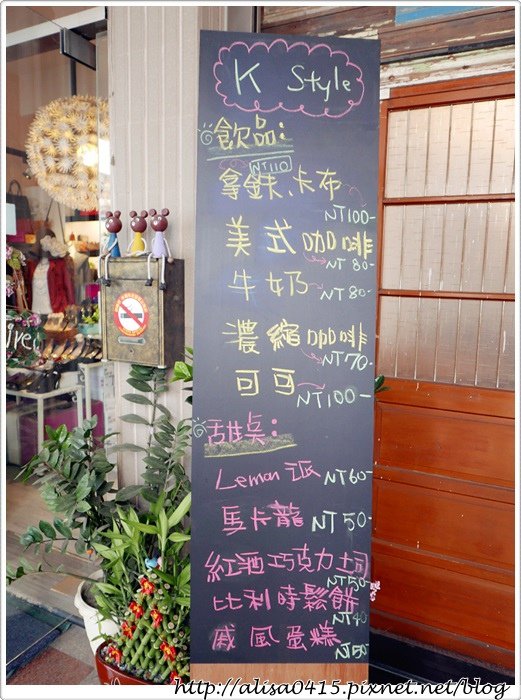 K Style
飲品:
NT110
拿鉄、卡布
NT100-
美式咖啡
NT 80-
牛奶
NT 80-
濃縮咖啡
NT70-
可可
NT100-
甜点:
Leman 派 NT60-
馬卡龍 NT 50-
紅酒巧克力土司
NT50-
比利時鬆餅
NT40
戚風蛋糕
NT50
http://alisa0415.pixnet.net/blog